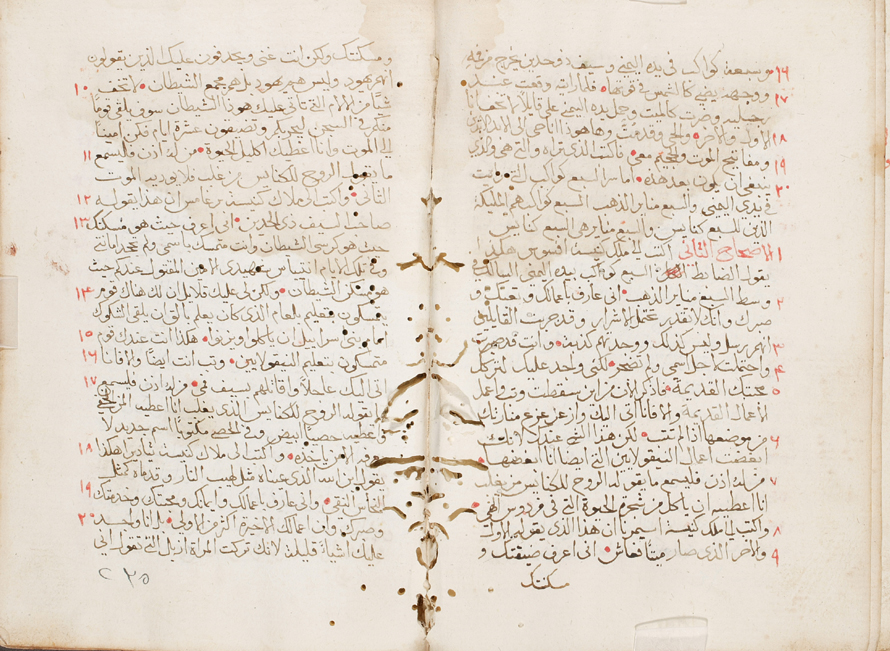 ١٦ وسبعة كواكب في يده اليمنى وسيف ذو حدين يخرج من فيه
ووجهه يضي كالشمس في قوتها فلما رايته وقعت عند
١٧ رجليه وصرت كالميت وجعل يده اليمنى علي قايلا لا تخف انا
١٨ الاول والاخر والحي وقد مت وها هوذا انا حي الى الابد
ومفاتيح الموت والجحيم معي فاكتب الذي تراه والتي هي والذي
١٩ ينبغي ان يكون بعد هذه اما سر السبع كواكب التي رايت
٢٠ في يدي اليمنى والسبع مناير الذهب السبع كواكب هم المليكة
الذين للسبع كنايس والسبع مناير هي السبع كنايس
١ الاصحاح الثاني اكتب الى ملك كنيسة افسوس هكذا
يقول الضابط السبع كواكب بيده اليمنى السالك في
٢ وسط السبع مناير الذهب اني عارف باعمالك وتعبك و
صبرك وانك لا تقدر تحتمل الاشرار وقد جربت القايلين
٣ انهم رسل وليس كذلك ووجدتهم كذبة وانت قد صبرت
٤ واحتملت لاجل اسمي ولم تضجر لكني واجد عليك لتركك
٥ محبتك القديمة فاذكر الان من اين سقطت وتب واعمل
الاعمال القديمة والا فانا اتي اليك وازعزع منارتك
٦ من موضعها اذا لم تتب لكن هذا الشي عندك لانك
ابغضت اعمال النيقولايين التي ايضا انا ابغضها
٧ من له اذن فليسمع ما يقول له الروح للكنايس من يغلب
انا اعطيه ان ياكل من شجرة الحيوة التي في فردوس الهي
٨ واكتب الى ملك كنيسة اسميرنا ان هذا الذي يقوله الاول
٩ والاخر الذي صار ميتا فعاش اني اعرف ضيقتك و
مسكنتك
ومسكنتك ولكن انت غني ويجدفون عليك الذين يقولون
انهم يهود وليس هم يهود بل هم مجمع الشيطان
١٠ لا تخف شيا من الالام التي تاتي عليك هوذا الشيطان سوف يلقي قوما
منكم في السجن ليجربكم وتضيقون عشرة ايام فكن امينا
الى الموت وانا اعطيك اكليل الحيوة
١١ من له اذن فليسمع ما يقول الروح للكنايس من غلب فلا يوذيه الموت
١٢ الثاني واكتب الى ملاك كنيسة برغامس ان هذا يقوله
١٣ صاحب السيف ذي الحدين اني اعرف حيث هو مسكنك
حيث هو كرسي الشيطان وانت متمسك باسمي ولم تجحد امانتي
وفي تلك الايام انتيباس شهيدي الامين المقتول عندكم حيث
١٤ هو مسكن الشيطان ولكن لي عليك قلايل ان لك هناك قوم
يتمسكون بتعليم بلعام الذي كان يعلم بالاق ان يلقي الشكوك
١٥ امام بني اسراييل ان ياكلوا ويزنوا هكذا انت عندك قوم
١٦ متمسكون بتعليم النيقولايين وتب انت ايضا والا فانا
١٧ اتي اليك عاجلا واقاتلهم بسيف فمي من له اذن فليسمع
ما يقوله الروح للكنايس الذي يغلب انا اعطيه المن المخفي
واعطيه حصا ابيض وفي الحصى مكتوبا اسم جديد لا
١٨ يعرفه الا من ياخذه واكتب الى ملاك كنيسة ثياديرا هكذا
يقول ابن الله الذي عيناه مثل لهيب النار وقدماه كمثل
١٩ النحاس النقي اني عارف باعمالك وايمانك ومحبتك وخدمتك
٢٠ وصبرك وان اعمالك الاخرة اكثر من الاولى بل انا واجد
عليك اشياء قليلة لانك تركت المراة ازبل التي تقول اني
٢٣٥